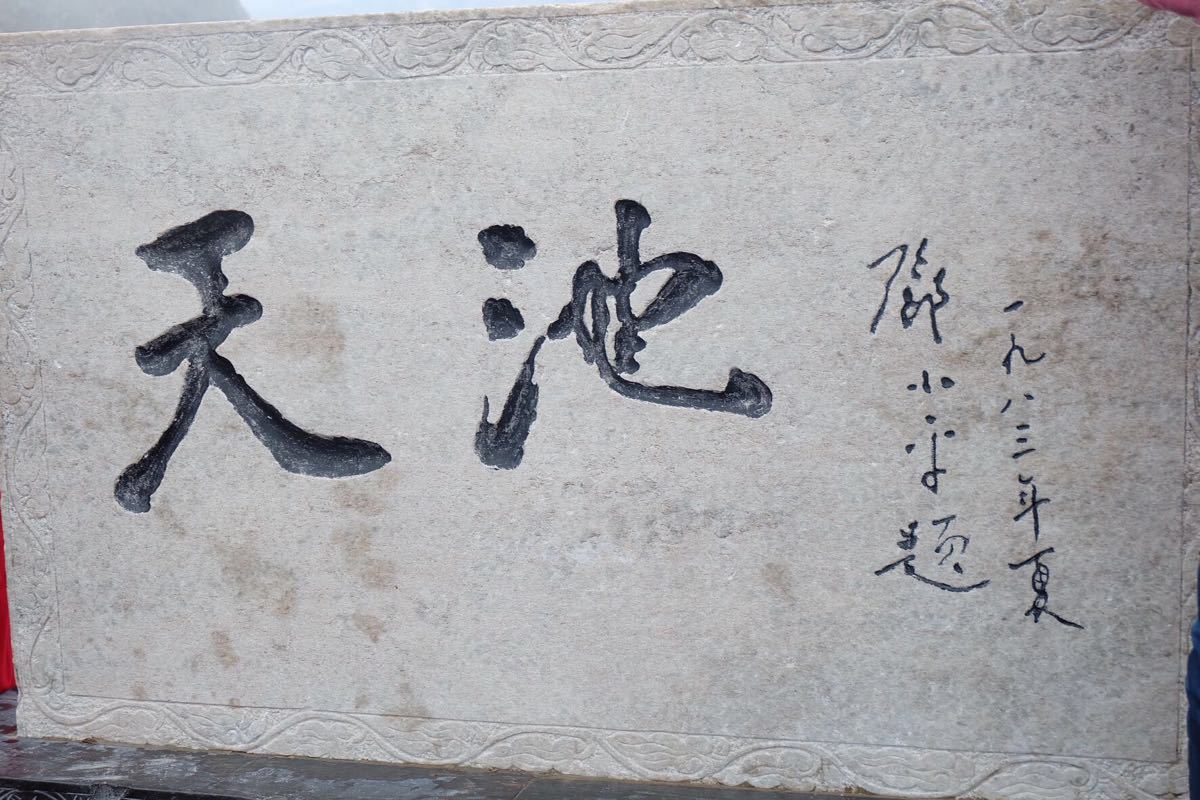 天池
一九八三年夏
邓小平题